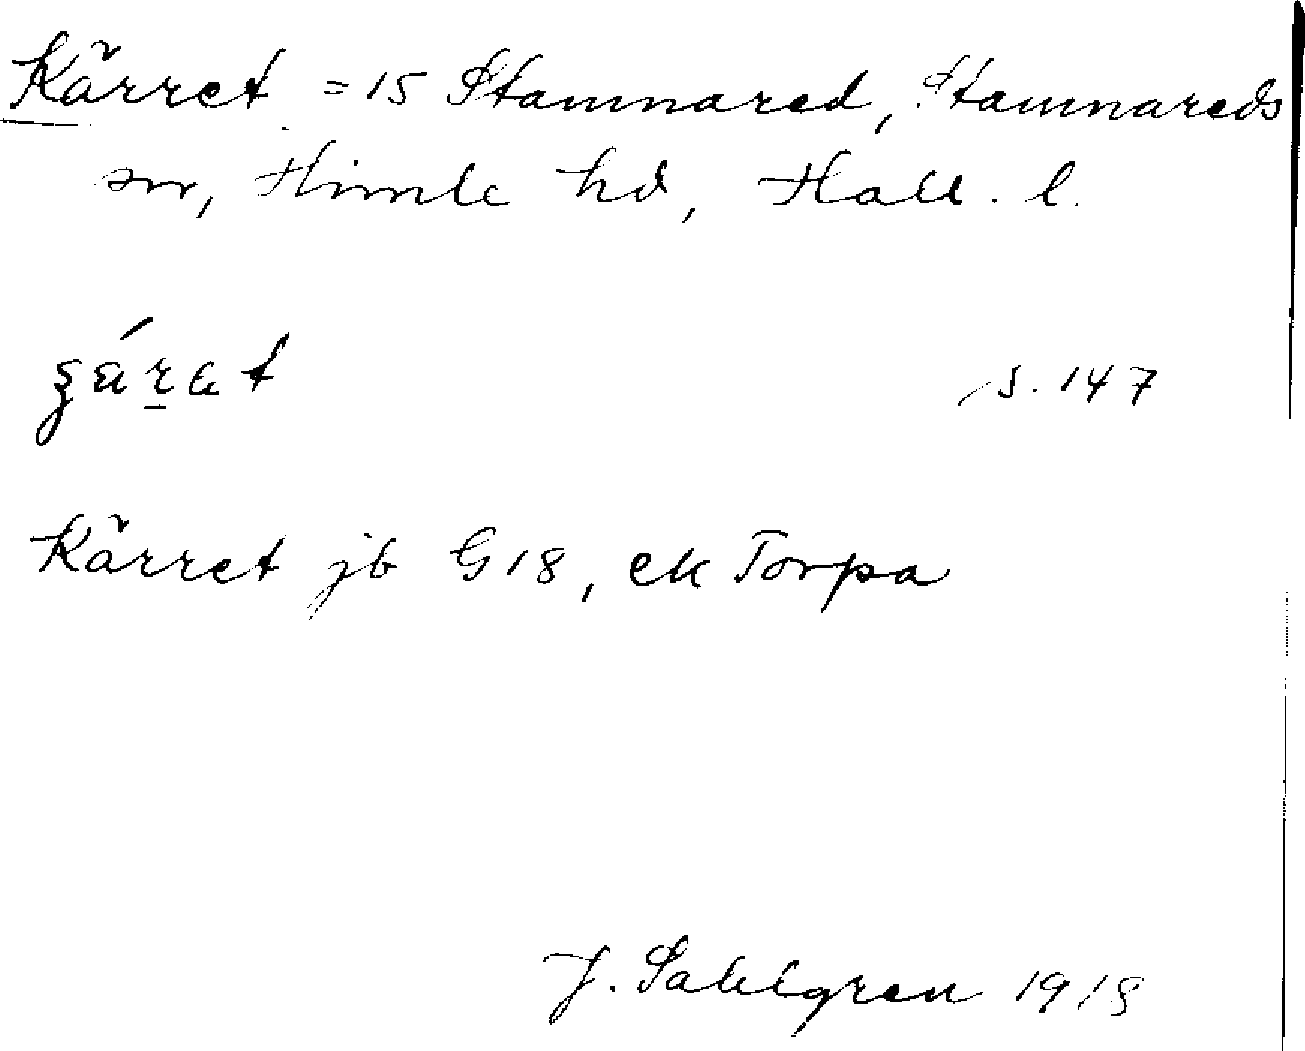 Kärret = 15 Stamnared, Stamnareds
sn, Himle hd, Hall. l.
s. 147
Kärret jb G18, ek Torpa
J. Sahlgren 1918